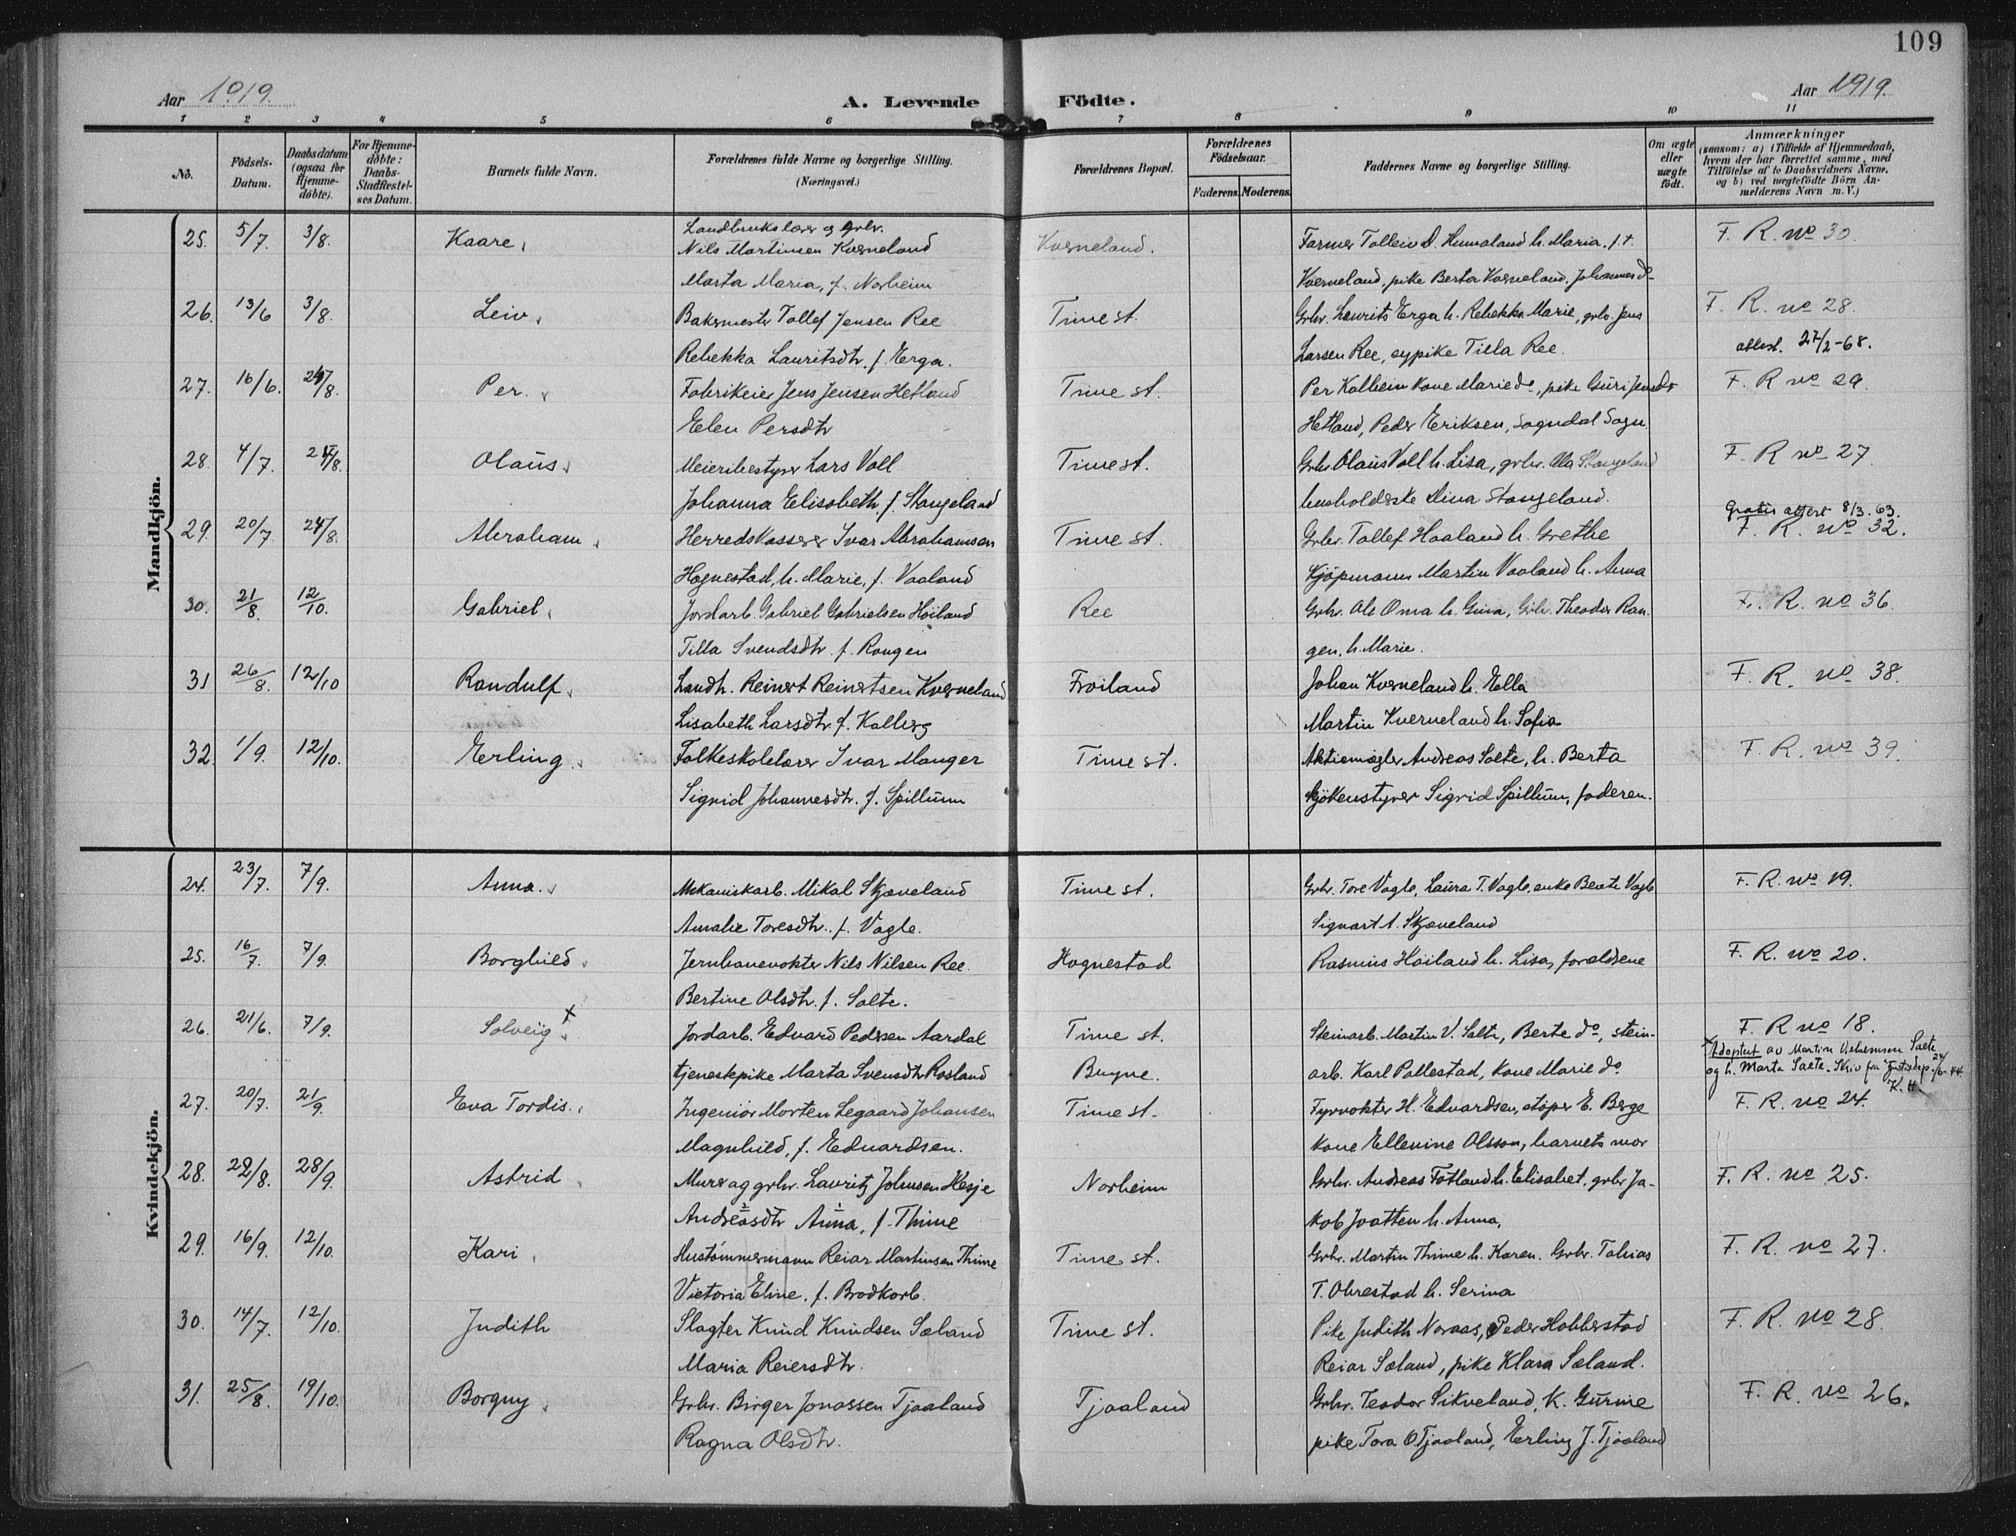 109
Aar 1919.
A. Levende Födte.
Aar 1919.
1 2 3 4 5 6 7 8 9 10 11
No.
Födsels-Datum.
Daabsdatum (ogsaa for Hjemme-döbte).
For Hjemme-döbte: Daabs-Stadfæstel-ses Datum.
Barnets fulde Navn.
Forældrenes fulde Navne og borgerlige Stilling. (Næringsvei.)
Forældrenes Bopæl.
Forældrenes Födselsaar.
Faderens. Moderens.
Faddernes Navne og borgerlige Stilling.
Om ægte eller uægte födt.
Anmærkninger
(saasom: a) i Tilfælde af Hjemmedaab, hvem der har forrettet samme, med Tilföielse af to Daabsvidners Navne, og b) ved uægtefödte Börn An-melderens Navn m. V.)
Mandkjön.
25. 5/7 3/8. Kaare, Landbrukslærer og grbr. Kverneland. Farmer Tolleiv D. Humaland h. Maria. f.t. F. R. no 30.
Nils Martinsen Kverneland
Marta Maria, f. Norheim Kverneland, pike Berta Kverneland, Johannes do
26. 13/6 3/8. Leiv, Bakermester Tollef Jensen Ree Time st. Grbr. Laurits Erga h. Rebekka Marie, grbr. Jens F. R. no 28.
Rebekka Lauritsdtr. f. Erga. Larsen Ree, sypike Tilla Ree. attest. 27/2-68.
27. 16/6. 24/8. Per. Fabrikeier Jens Jensen Hetland Time st. Per Kalheim kone Marie do, pike Guri Jensdtr F. R no 29.
Elen Persdtr Hetland, Peder Eriksen, Sogndal Sogn.
28. 4/7. 24/8. Olaus. Meieribestyrer Lars Voll Time st. Grbr Olaus Voll h. Lisa, grbr. Ola Stangeland F. R no 27
Johanna Elisabeth. f. Stangeland husholderske Dina Stangeland. Gratis attest 8/3.63.
29. 20/7 24/8. Abraham. Herredskasserer Ivar Abrahamsen Time st. Grbr. Tollef Haaland h. Grethe F. R. no 32.
Hognestad, h. Marie, f. Vaaland Kjöpmann Martin Vaaland h. Anna
30. 21/8. 12/10. Gabriel, Jordarb. Gabriel Gabrielsen Höiland Ree Grbr. Ole Oma h. Gina, Grbr. Theodor Ran- F. R. no 36.
Tilla Svendsdtr. f. Rangen gen. h. Marie.
31 26/8. 12/10 Randulf. Landh. Reinert Reinertsen Kverneland Fröiland Johan Kverneland h. Ella F. R. no 38.
Lisabeth Larsdtr. f. Kalberg Martin Kverneland h. Sofia
32. 1/9. 12/10. Erling. Folkeskolelærer Ivar Manger Time st. Aktiemægler Andreas Salte, h. Berta F. R. no 39.
Sigrid Johannesdtr. f. Spillum Kjökenstyrer Sigrid Spillum, faderen.
Kvindekjön.
24. 23/7. 7/9. Anna. Mekanikarb. Mikal Skjæveland Time st. Grbr. Tore Vagle, Laura T. Vagle, enke Berte Vagle F. R. no 19.
Amalie Toresdtr. f. Vagle. Sigvart A. Skjæveland
25. 16/7. 7/9. Borghild. Jernbanevokter Nils Nilsen Ree. Hognestad Rasmus Höiland h. Lisa, forældrene F. R. no 20.
Bertine Olsdtr. f. Salte.
26. 21/6. 7/9. Solveig x Jordarb. Edvard Pedersen Aardal Time st. Steinarb. Martin V. Salte, Berte do, stein- F. R no 18.
tjenestepike Marta Svensdtr Rosland Bryne. arb. Karl Pollestad, kone Marie do x Adoptert av Martin Vilhelmsen Salte og h. Marta Salte. Skriv fra Justisdep. 24/6-44. K. H.
27. 20/7. 21/9. Eva Tordis. Ingeniör Morten Legaard Johansen Time st. Fyrvokter H. Edvardsen, stöper E. Berge F. R. no 24.
Magnhild, f. Edvardsen. kone Ellevine Olsson, barnets mor
28. 22/8. 28/9. Astrid Murer og grbr. Lauritz Johnsen Hesje Norheim Grbr. Andreas Fotland h. Elisabet, grbr Ja- F. R. no 25.
Andreasdtr Anna, f. Thime kob Jaatten h. Anna.
29. 16/9. 12/10. Kari. Hustömmermann Reiar Martinsen Thime Time st. Grbr. Martin Thime h. Karen. Grbr. Tobias F. R. no 27.
Victoria Eline, f. Brodkorb. T. Obrestad h. Serina
30. 14/7. 12/10. Judith Slagter Knud Knudsen Sæland Time st. Pike Judith Noraas, Peder Hobberstad F. R. no 28.
Maria Reiersdtr. Reiar Sæland, pike Klara Sæland.
31. 25/8. 19/10. Borgny. Grbr. Birger Jonassen Tjaaland Tjaaland Grbr. Teodor Sikveland, K. Gurine F. R. no 26.
Ragna Olsdtr. pike Tora O. Tjaaland, Erling J. Tjaaland